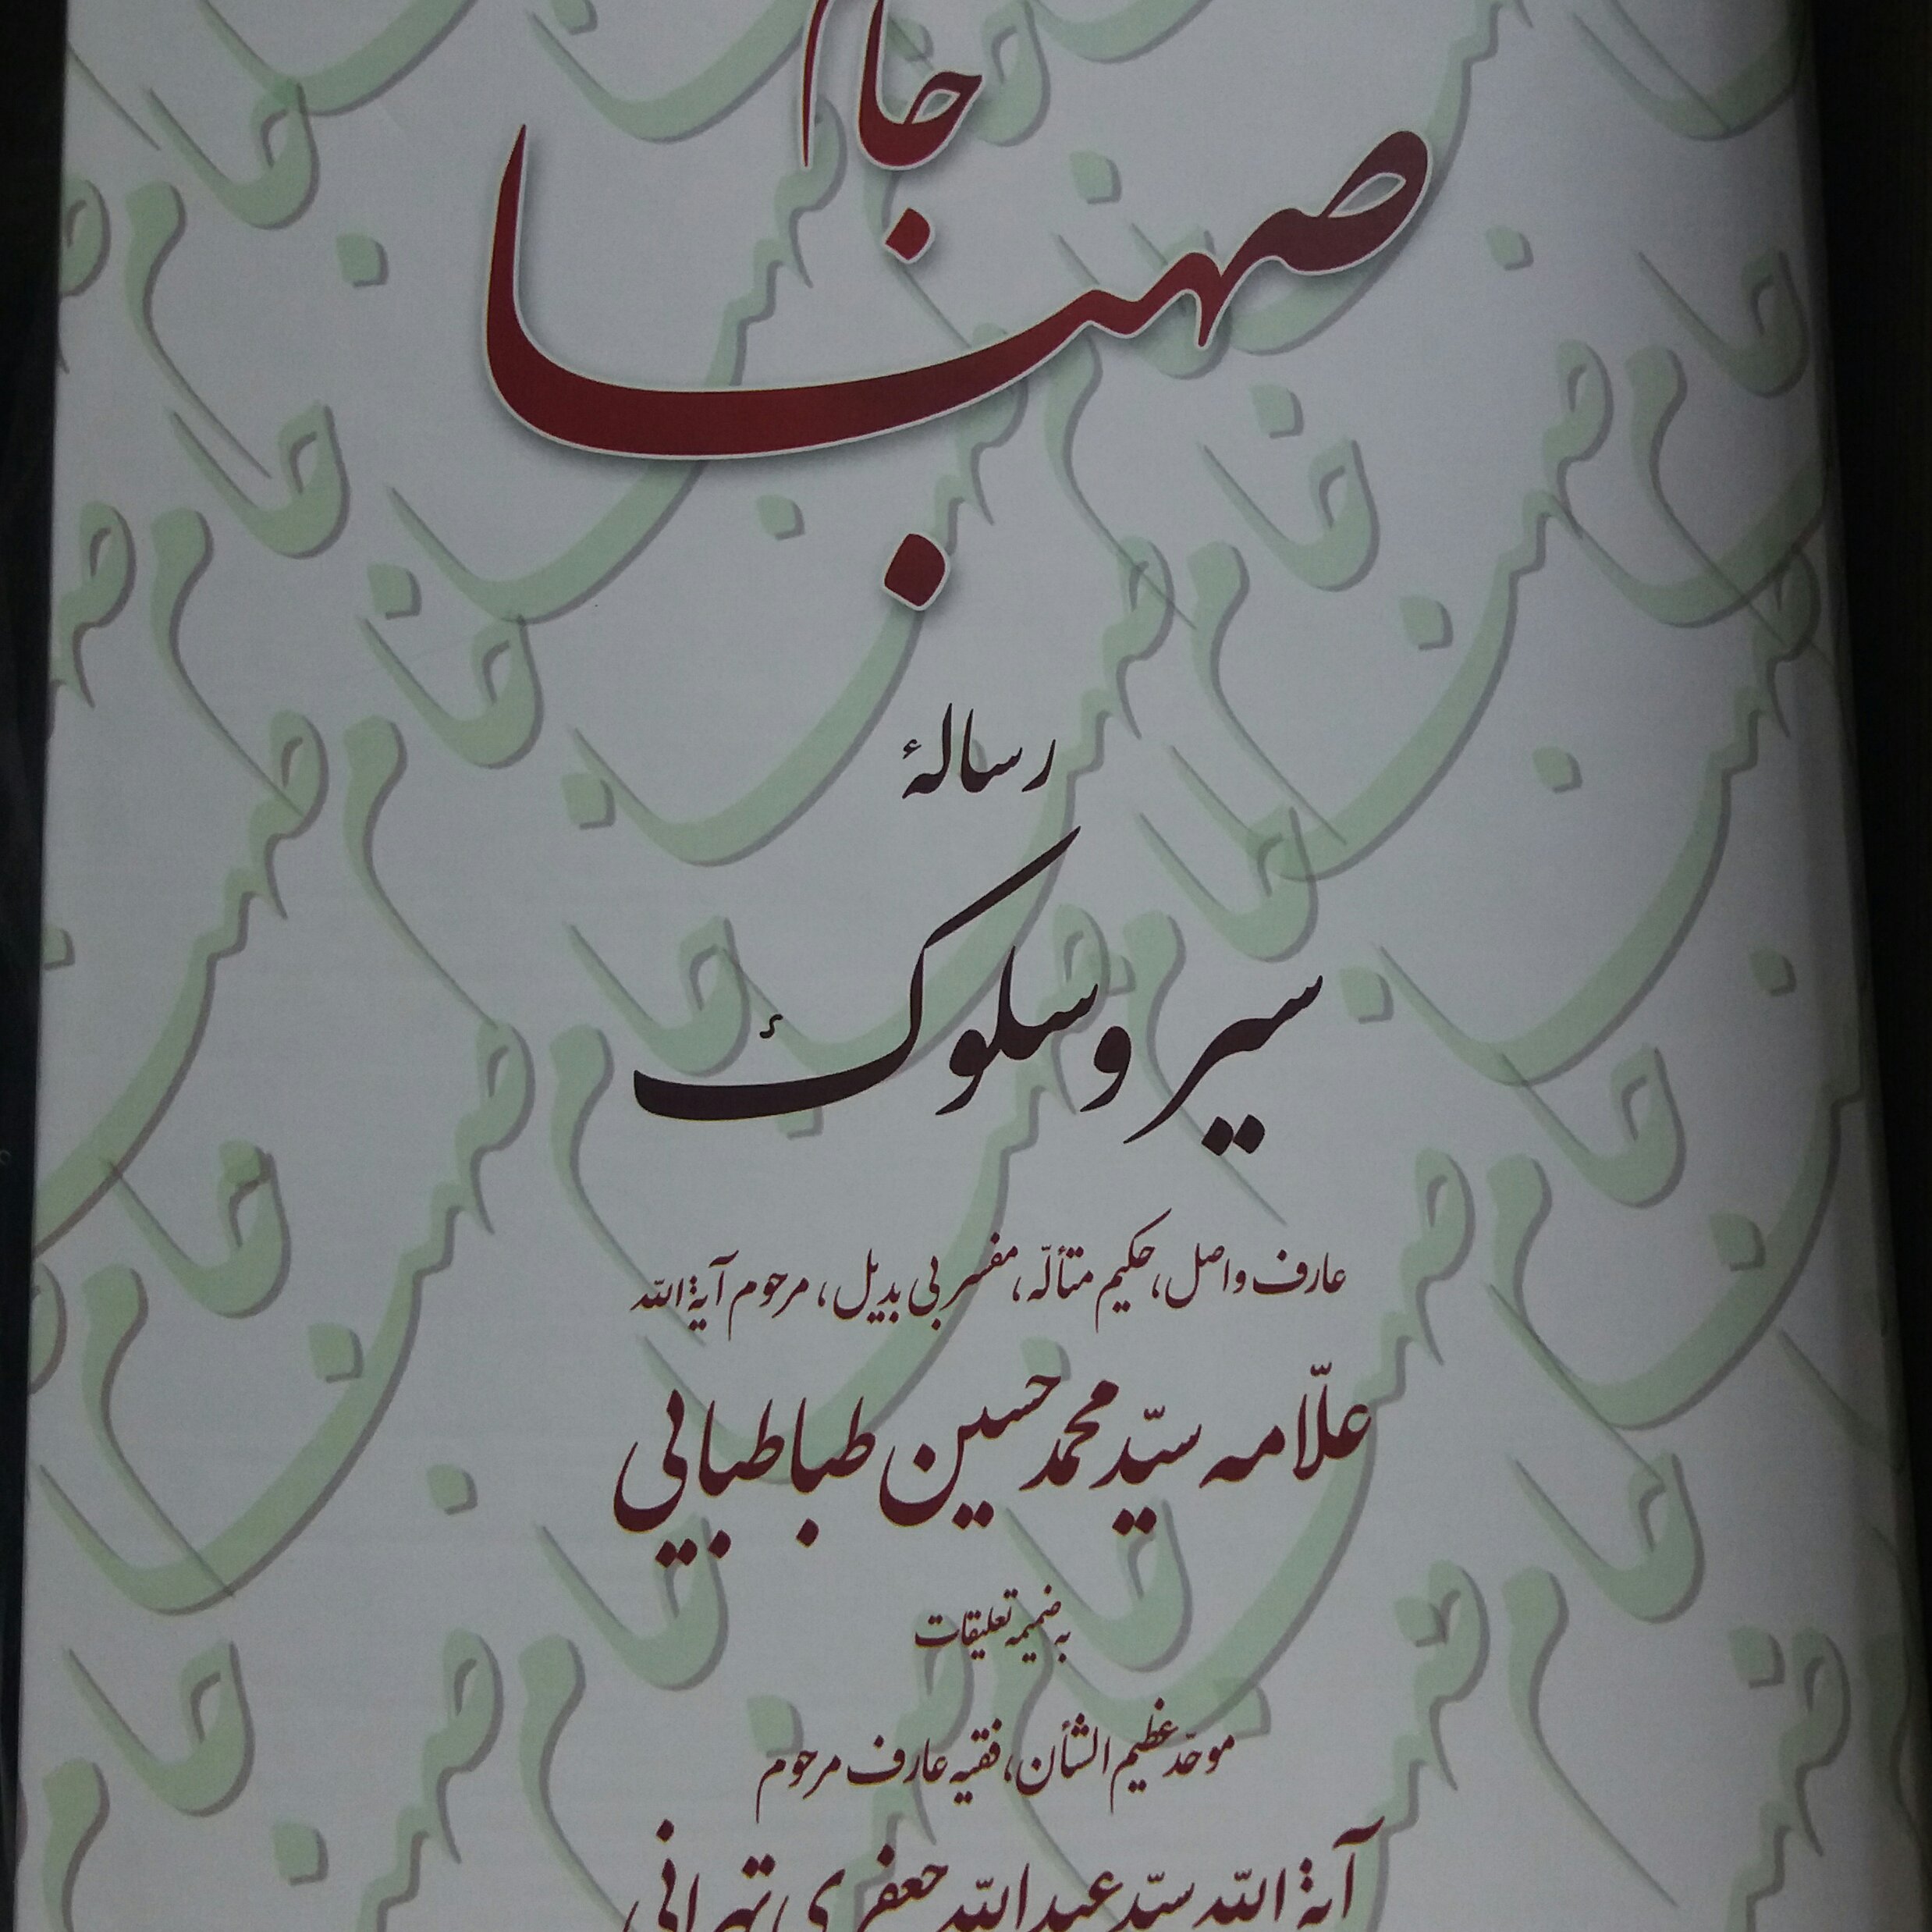 جام
صهبا
رسالهٔ
سیر و سلوک
عارف واصل، حکیم متألّه، مفسر بی بدیل، مرحوم آیة الله
علّامه سیّد محمد حسین طباطبایی
به ضمیمه تعلیقات
موحّد عظیم الشأن، فقیه عارف مرحوم
آیة الله سیّد عبدالله جعفری تهرانی